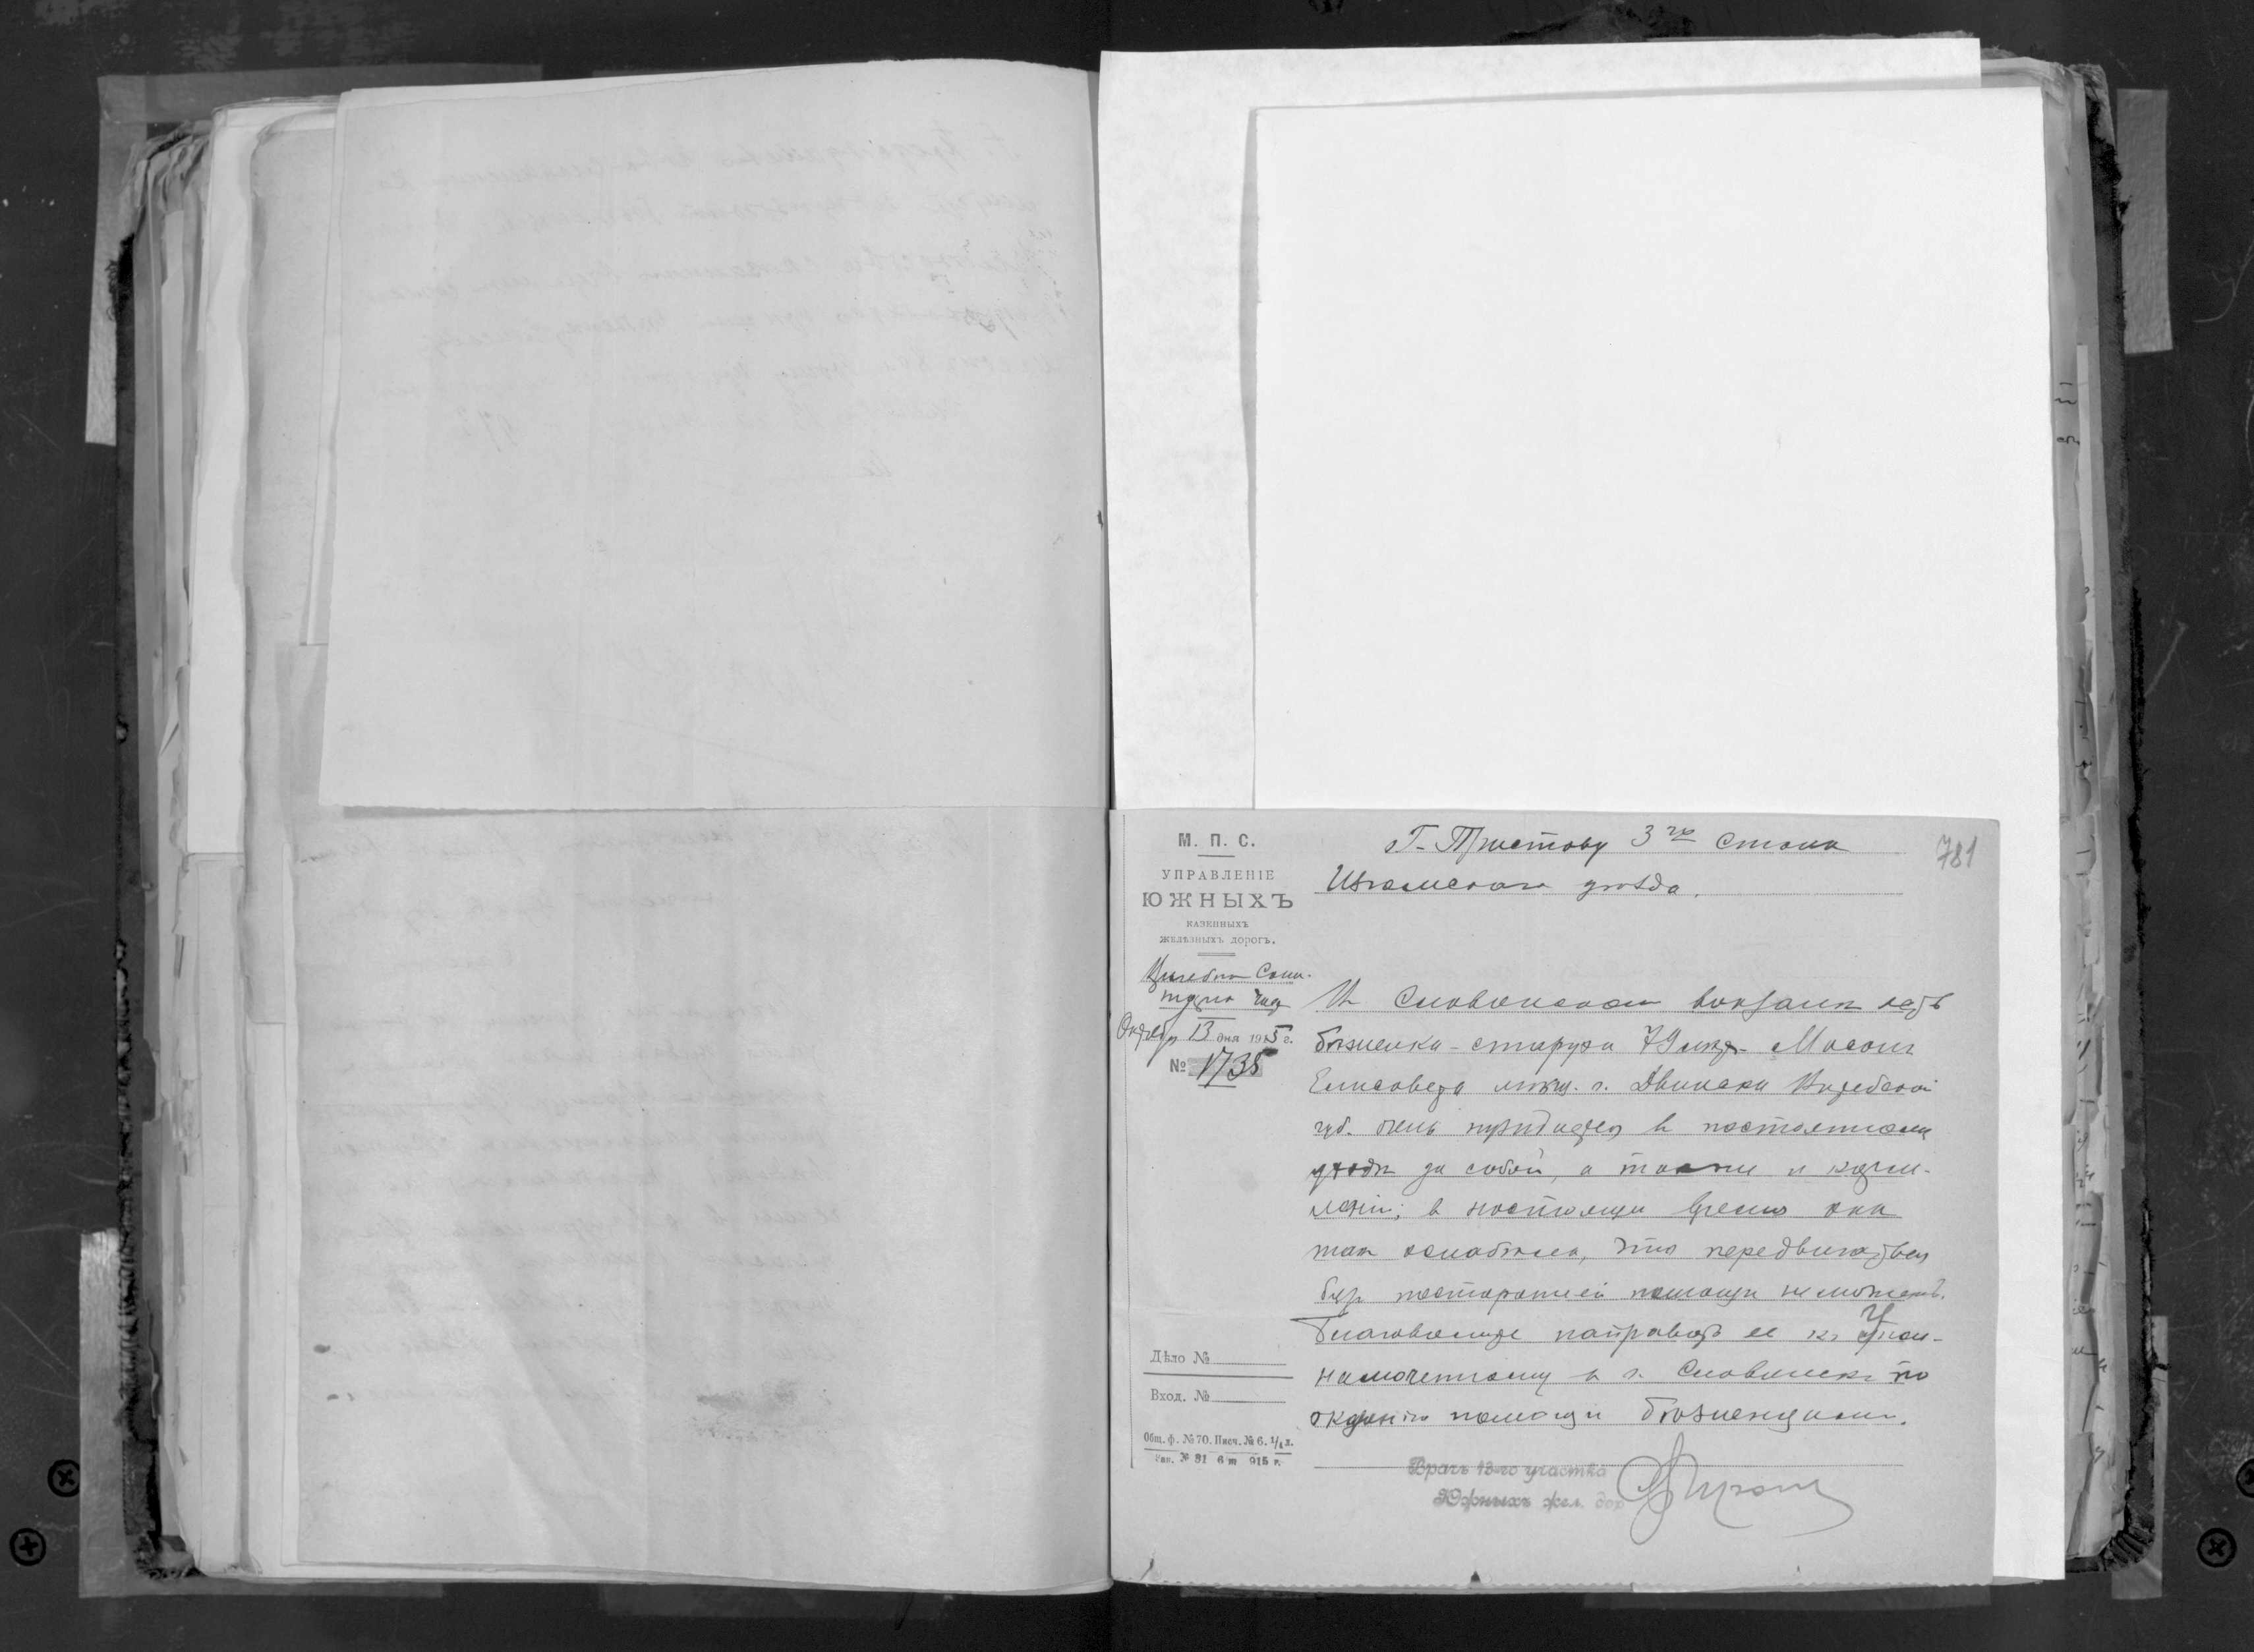 781
М. П. С.
УПРАВЛЕНІЕ
ЮЖНЫХЪ
КАЗЕННЫХЪ
ЖЕЛѢЗНЫХЪ ДОРОГЪ.
Врачебно Сани-
тарн часть
Октября 13 дня 1915 г.
№ 1735
Дѣло №
Вход. №
Общ. ф. № 70. Писч. № 6. 1/4 л.
Зак. № 31 6 m 915 г.
Г. Приставу 3го Стана
Изюмскаго уѣзда.
На Славянском вокзалѣ есть
бѣженка - старуха 79 лѣт - Масон
Елисавета мѣщ. г. Двинска Витебской
губ. очень нуждается в постоянном
уходѣ за собой, а также и кормлен-
; в настоящее время она
так ослабѣла, что передвигаться
без посторонней помощи не можетъ.
Благоволите направить ее къ Упол-
намоченному в г. Славянскѣ по
оказанію помощи бѣженцам.
Врачъ 13-го участка
Южныхъ жел. дор